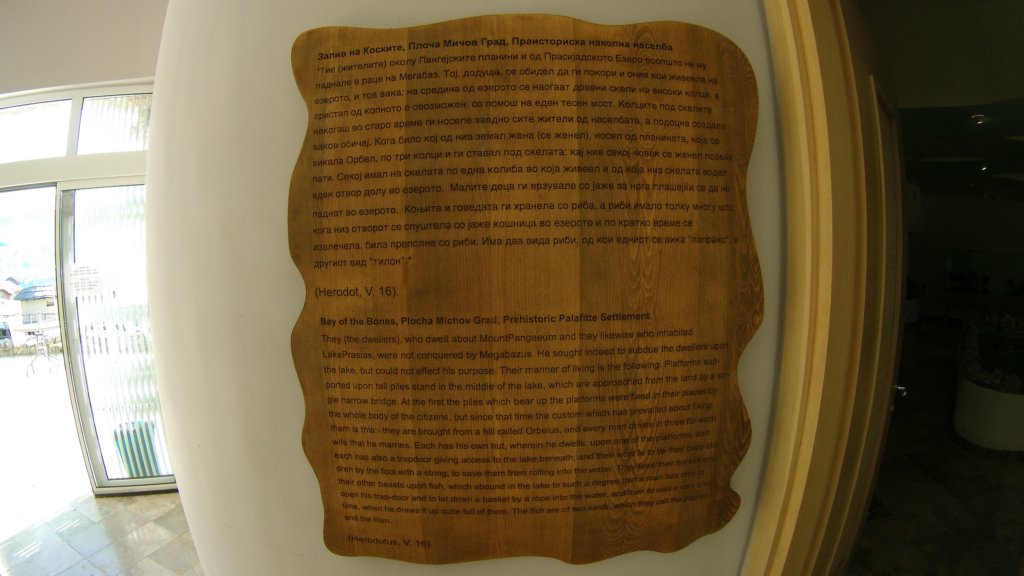 Залив на Коските, Плоча Мичов Град, Праисториска наколна населба
"Тие (жителите) околу Пангејските планини и од Прасијадското Езеро воопшто не му
паднале в раце на Мегабаз. Тој, додуша, се обидел да ги покори и оние кои живееле на
езерото, и тоа вака: на средина од езерото се наоѓаат дрвени скели на високи колци, а
пристап од копното е овозможен, со помош на еден тесен мост. Колците под скелите
некогаш во старо време ги носеле заедно сите жители од населбата, а подоцна создале
ваков обичај. Кога било кој од нив земал жена (се женел), носел од планината, која се
викала Орбел, по три колци и ги ставал под скелата; кај нив секој човек се женел повеќе
пати. Секој имал на скелата по една колиба во која живеел и од која низ скелата водел
еден отвор долу во езерото. Малите деца ги врзувале со јаже за нога плашејќи се да не
паднат во езерото. Коњите и говедата ги хранеле со риба, а риби имало толку многу што,
кога низ отворот се спуштела со јаже кошница во езерото и по кратко време се
извлечела, била преполна со риби. Има два вида риби, од кои едниот се вика "папракс", а
другиот вид "тилон"."
(Herodot, V, 16).
Bay of the Bones, Plocha Michov Grad, Prehistoric Palafitte Settlement
They (the dwellers), who dwelt about MountPangaeum and they likewise who inhabited
LakePrasias, were not conquered by Megabazus. He sought indeed to subdue the dwellers upon
the lake, but could not effect his purpose. Their manner of living is the following. Platforms sup-
ported upon tall piles stand in the middle of the lake, which are approached from the land by a sin-
gle narrow bridge. At the first the piles which bear up the platforms were fixed in their places by
the whole body of the citizens, but since that time the custom which has prevailed about fixing
them is this:- they are brought from a hill called Orbelus, and every man drives in three for each
wife that he marries. Each has his own hut, wherein he dwells, upon one of the platforms, and
each has also a trapdoor giving access to the lake beneath; and their wont is to tie their baby chil-
dren by the foot with a string, to save them from rolling into the water. They feed their horses and
their other beasts upon fish, which abound in the lake to such a degree that a man has only to
open his trap-door and to let down a basket by a rope into the water, and then to wait a very short
time, when he draws it up quite full of them. The fish are of two kinds, which they call the paprax
and the tilon.
(Herodotus, V, 16).